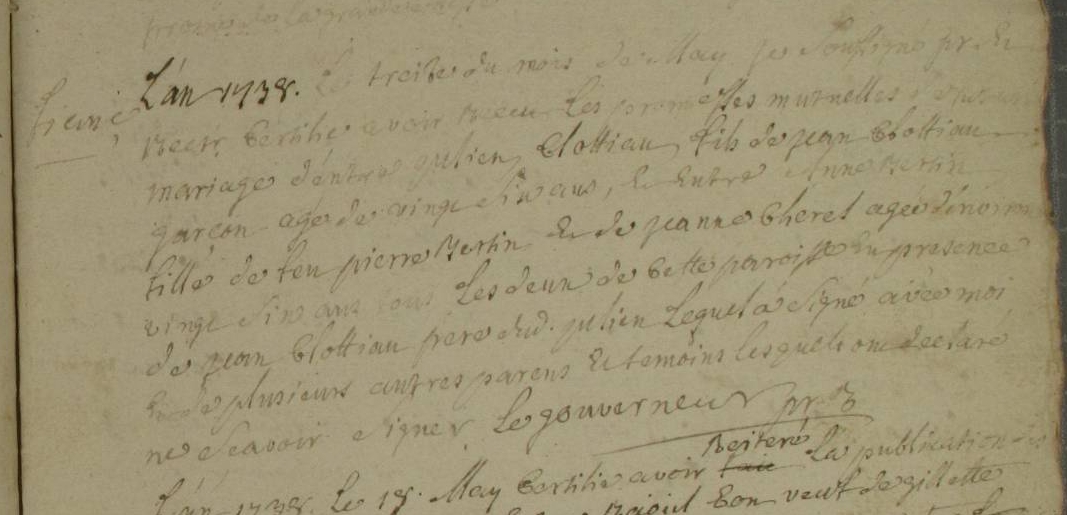 L'án 1738. Le treize du mois de May je soussigné pr. &
Recr. Certifie avoir Receu Les promesses mutuelles
mariage d'entre julien Clottiau fils de jean Clottiau
garcon agé de vingt six ans, & Entre Anne Bertin
fille de feu pierre Bertin & de jeanne Cheret agée d'
vingt six ans tous Les deux de Cette paroisse En presence
de jean Clottiau frere dud. julien Lequel a signé avec moi
En de plusieurs autres parens & temoins lesquels ont declaré
ne scavoir signer Le gouverneur pr. R
Reiteré
L'án 1738. Le 18. May Certifie avoir faie La publication
bon veuf de gillette